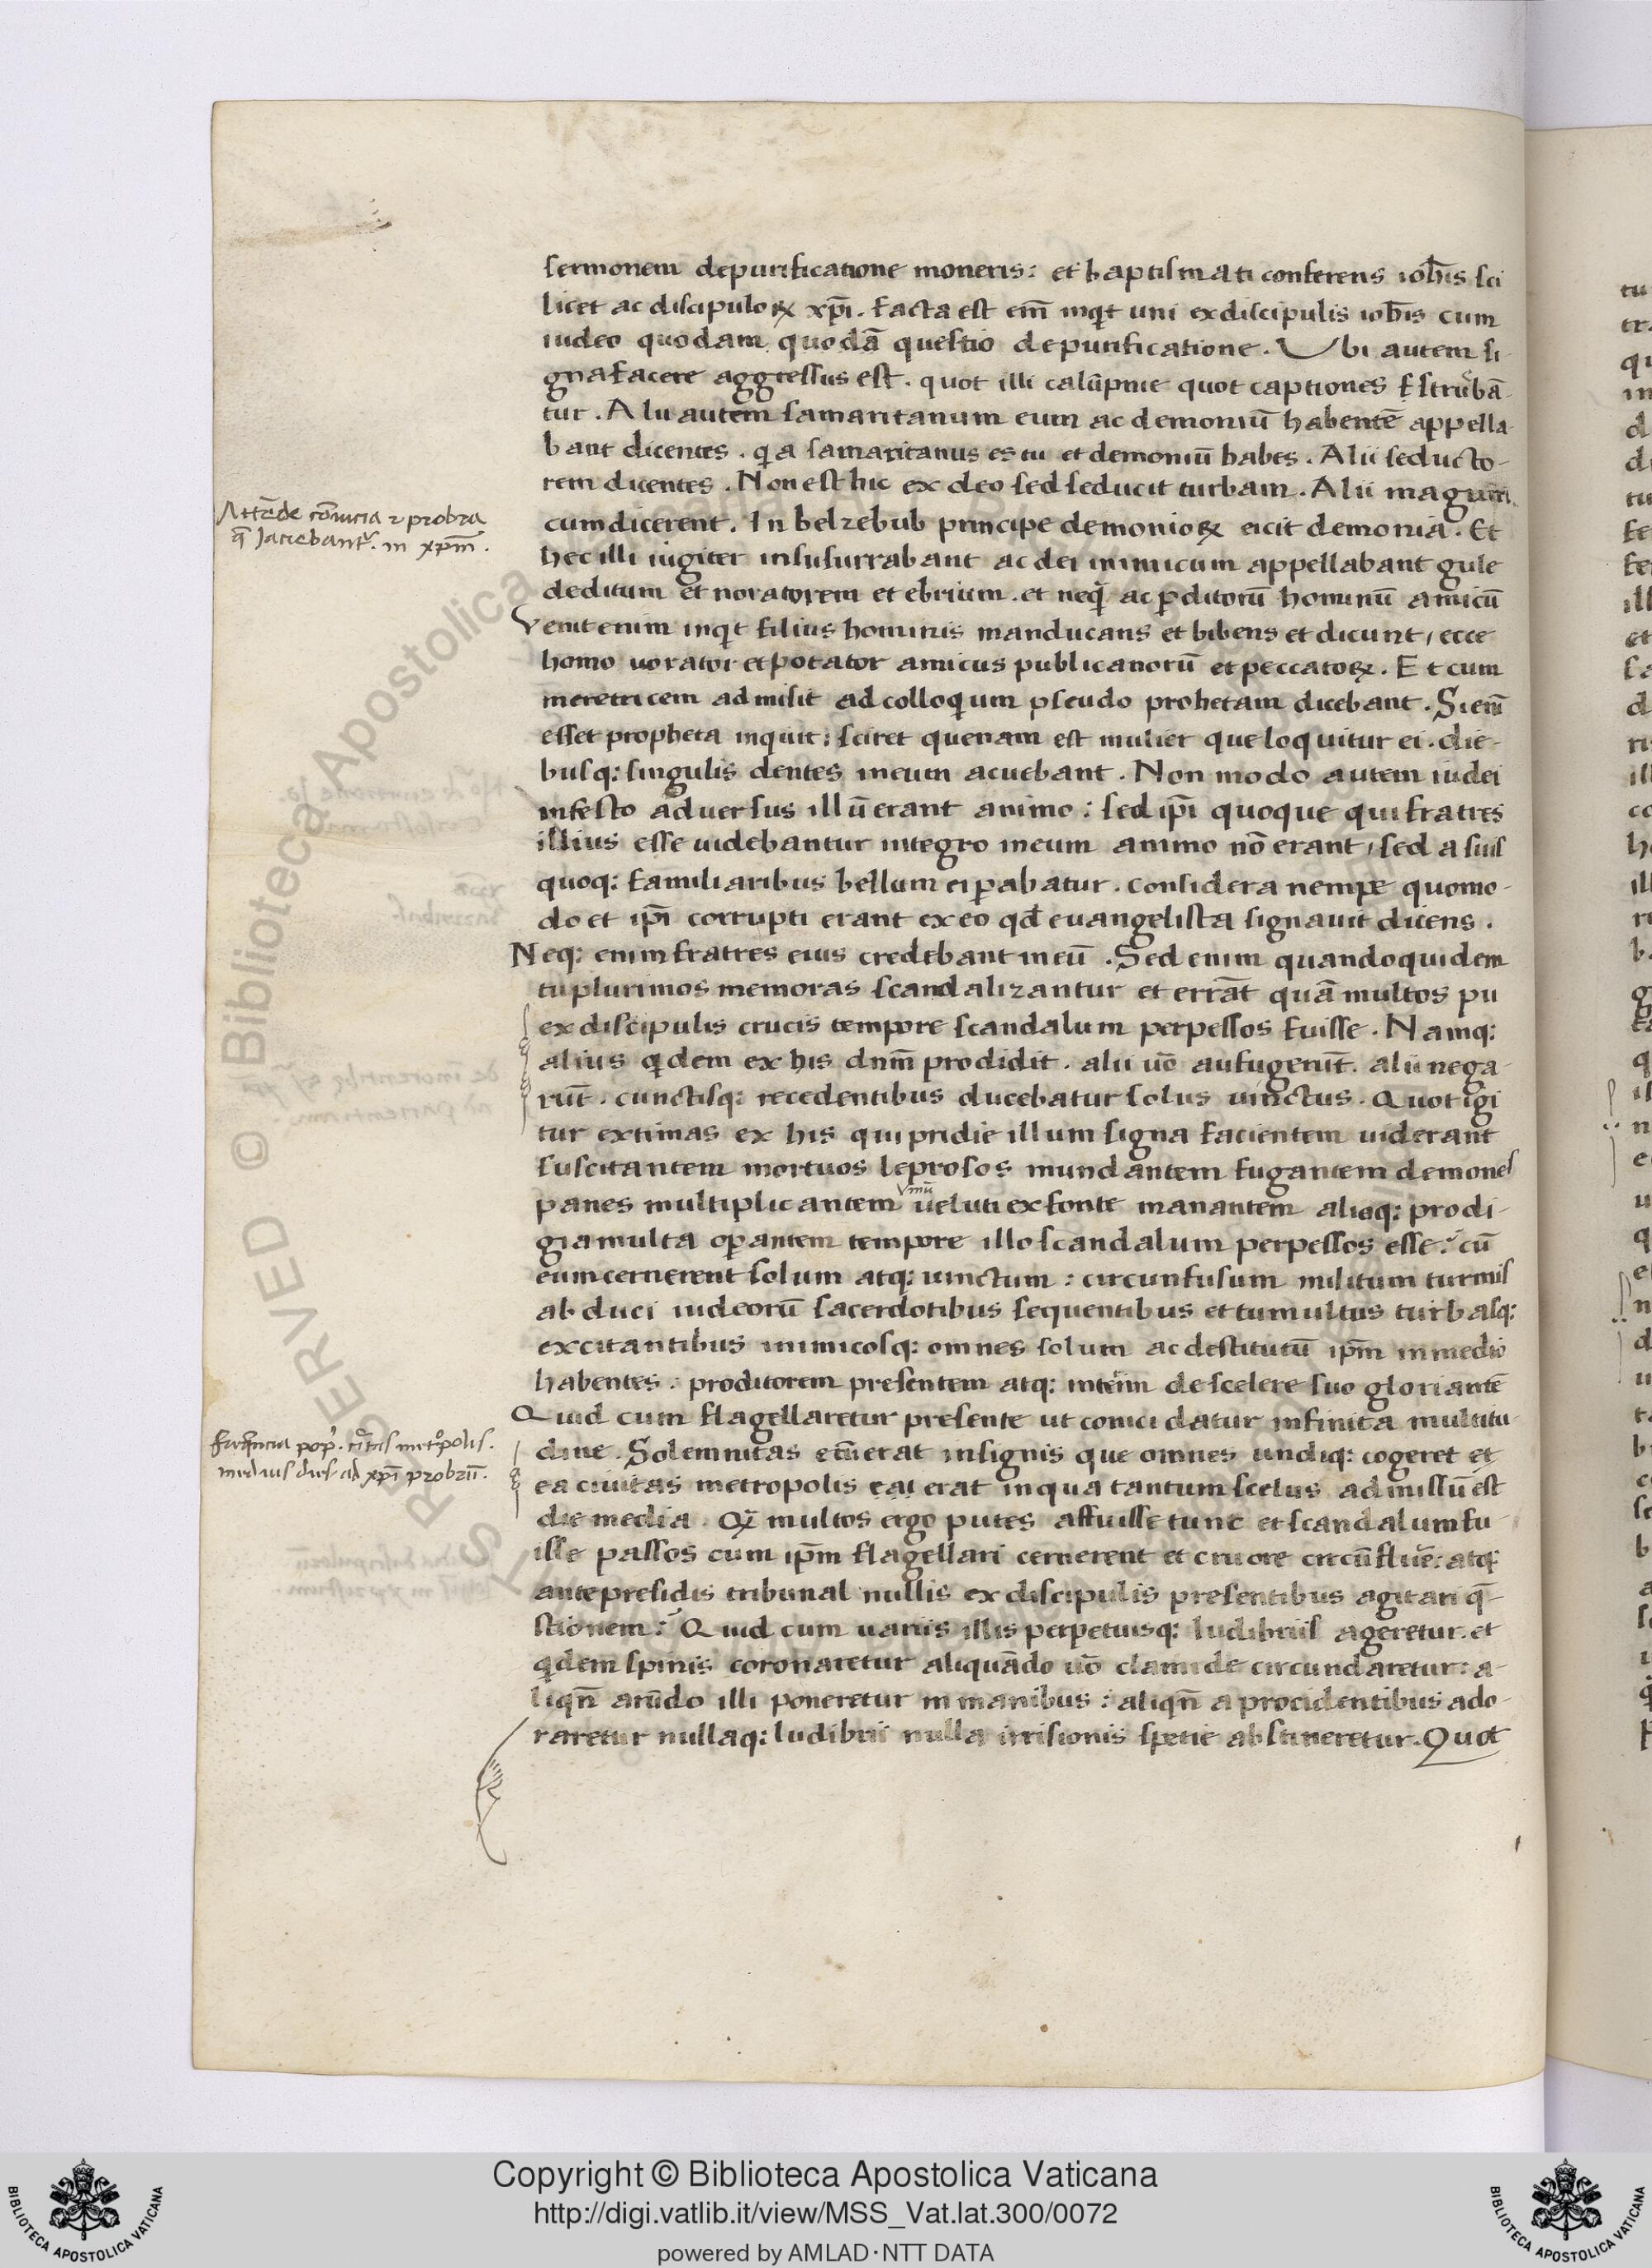 sermonem de purificatione moueris: et baptismati conferens ioh̄is sci
licet ac discipuloꝝ xp̄i. Facta est em̄ inqͥt uni ex discipulis ioh̄is cum
iudeo quodam quodā questio de purificatione. Ubi autem si-
gna facere aggressus est. quot illi calūpnie quot captiones
tur. Alii autem samaritanum eum ac demoniū habentē appella-
bant dicentes. qͥa samaritanus es tu et demoniū habes. Alii seducto-
rem dicentes. Non est hic ex deo sed seducit turbam. Alii magum
cum dicerent. In belzebub principe demonioꝝ eicit demonia. Et
hec illi iugiter insusurrabant ac dei inimicum appellabant gule
deditum et uoratorem et ebrium. et neqͣ ac ꝑditorū hominū amicū
Venit enim inqͥt filius hominis manducans et bibens et dicunt, ecce
homo uorator et potator amicus publicanorū et peccatoꝝ. Et cum
meretricem admisit ad colloqͥum pseudo prohetam dicebant. Si em̄
esset propheta inquit: sciret quenam est mulier que loquitur ei. die-
busq: singulis dentes in eum acuebant. Non modo autem iudei
infesto aduersus illū erant animo: sed ip̄i quoque qui fratres
illius esse uidebantur integro in eum animo nō erant, sed a suis
quoq: familiaribus bellum ei ꝑabatur. considera nempe quomo-
do et ip̄i corrupti erant ex eo qd̄ euangelista signauit dicens.
Neq: enim fratres eius credebant in eū. Sed enim quandoquidem
tu plurimos memoras scandalizantur et errāt quā multos pu
ex discipulis crucis tempore scandalum perpessos fuisse. Namq:
alius qͥdem ex his dnm̄ prodidit. alii uō aufugerūt. alii nega-
rūt. cunctisq: recedentibus ducebatur solus uinctus. Quot igi
tur extimas ex his qui pridie illum signa facientem uiderant
suscitantem mortuos leprosos mundantem fugantem demones
panes multiplicantem ueluti ex fonte manantem aliaq: prodi-
gia multa oꝑantem tempore illo scandalum perpessos esse: cū
eum cernerent solum atq: uinctum: circunfusum militum turmis
ab duci iudeorū sacerdotibus sequentibus et tumultus turbasq:
excitantibus inimicosq: omnes solum ac destitutū ip̄m in medio
habentes: proditorem presentem atq: interim de scelere suo gloriantē
Quid cum flagellaretur presente ut conici datur infinita multitu
dine. Solemnitas em̄ erat insignis que omnes undiq: cogeret et
ea ciuitas metropolis erat in qua tantum scelus admissū est
die media. Qͣ multos ergo putes affuisse tunc et scandalum fu-
isse passos cum ip̄m flagellari cernerent et cruore circūfluē: atq:
ante presidis tribunal nullis ex discipulis presentibus agitari q̄-
stionem: Quid cum uariis illis perpetuisq: ludibriis ageretur. et
qͥdem spinis coronaretur aliquādo uō clamide circundaretur: a-
liqn̄ arūdo illi poneretur in manibus: aliqn̄ a procidentibus ado-
raretur nullaq: ludibrii nulla irrisionis spetie abstineretur. Quot
Attēde cōuicia ⁊ probra
q̄ Iaciebantͬ. in xpm̄.
vinū
frequentia popͣ. ciuitas metropolis.
medius dies. ad xp̄i probrū.
© Biblioteca Apostolica
Copyright © Biblioteca Apostolica Vaticana
http://digi.vatlib.it/view/MSS_Vat.lat.300/0072
powered by AMLAD·NTT DATA
BIBLIOTECA APOSTOLICA VATICANA
BIBLIOTECA APOSTOLICA VATICANA